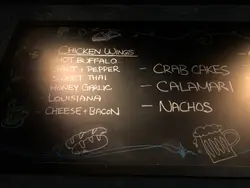 CHICKEN WINGS
HOT BUFFALO
SALT + PEPPER
SWEET THAI
HONEY GARLIC
LOUISIANA
CHEESE + BACON
- CRAB CAKES
- CALAMARI
- NACHOS